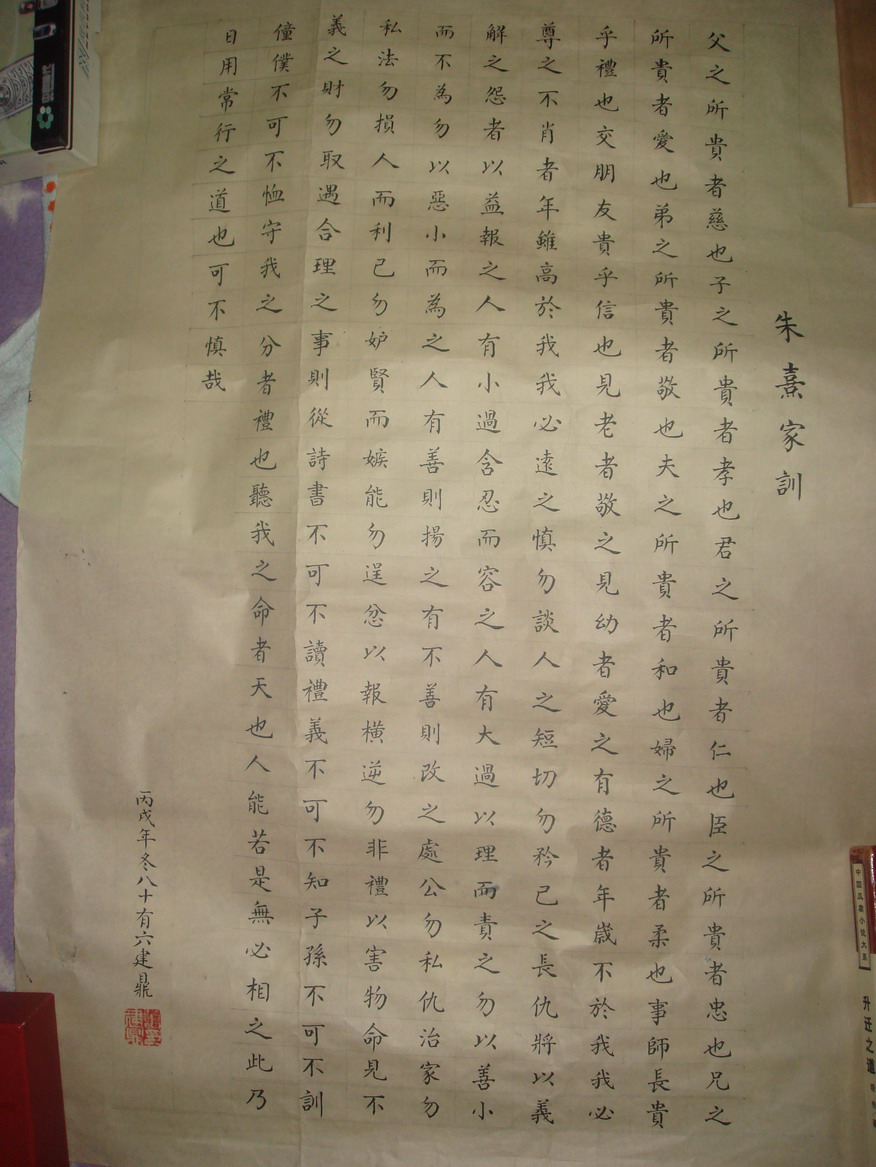 朱熹家訓
父之所貴者慈也子之所貴者孝也君之所貴者仁也臣之所貴者忠也兄之
所貴者愛也弟之所貴者敬也夫之所貴者和也婦之所貴者柔也事師長貴
乎禮也交朋友貴乎信也見老者敬之見幼者愛之有德者年歲不於我我必
尊之不肖者年雖高於我我必遠之慎勿談人之短切勿矜己之長仇將以義
解之怨者以益報之人有小過含忍而容之人有大過以理而責之勿以善小
而不為勿以惡小而為之人有善則揚之有不善則改之處公勿私仇治家勿
私法勿損人而利己勿妒賢而嫉能勿逞忿以報橫逆勿非禮以害物命見不
義之財勿取遇合理之事則從詩書不可不讀禮義不可不知子孫不可不訓
僮僕不可不恤守我之分者禮也聽我之命者天也人能若是無必相之此乃
日用常行之道也可不慎哉
丙戌年冬八十有六建鼎
升迁之道